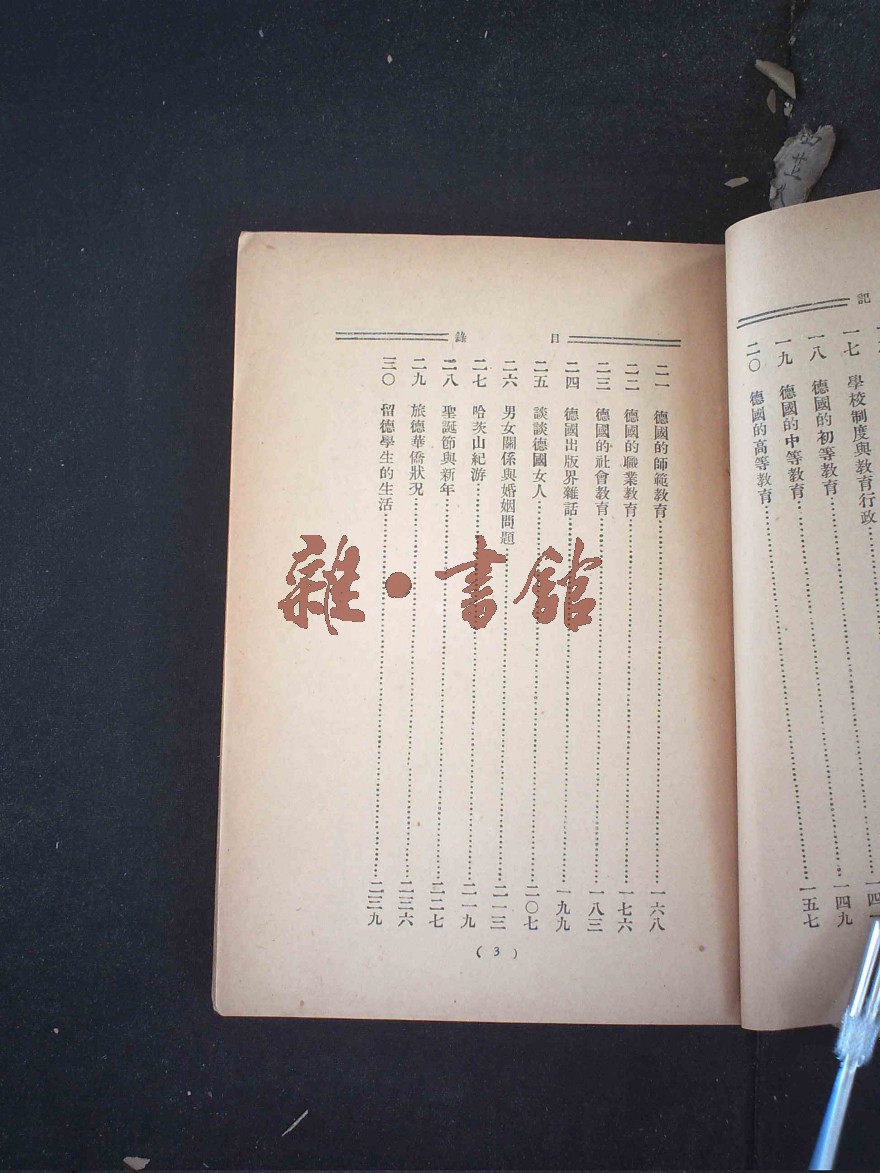 記
一七　學校制度與教育行政
一八　德國的初等教育
一九　德國的中等教育……一四九
二〇　德國的高等教育……一五七
目錄
二一　德國的師範教育……一六八
二二　德國的職業教育……一七六
二三　德國的社會教育……一八三
二四　德國出版界雜話……一九九
二五　談談德國女人……二〇七
二六　男女關係與婚姻問題……二一三
二七　哈茨山紀游……二一九
二八　聖誕節與新年……二二七
二九　旅德華僑狀況……二三六
三〇　留德學生的生活……二三九
(3)
雜·書館